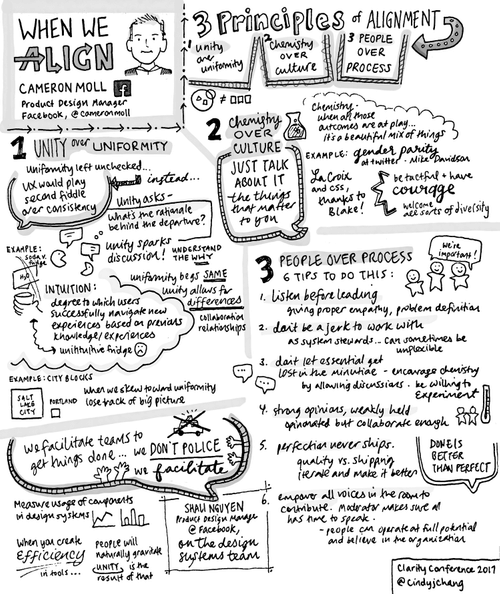 WHEN WE
ALIGN
CAMERON MOLL
Product Design Manager
Facebook, @cameronmoll
3 Principles of ALIGNMENT
1 Unity
over
uniformity
2 Chemistry
over
culture
3 PEOPLE
OVER
PROCESS
1 UNITY over UNIFORMITY
Uniformity left unchecked...
UX would play
second fiddle
over consistency
instead...
Unity asks -
What's the rationale
behind the departure?
unity sparks
discussion!
UNDERSTAND
THE WHY
EXAMPLE:
soda v.
fridge
H2O
INTUITION:
degree to which users
successfully navigate new
experiences based on previous
knowledge/experiences
unintuitive fridge
uniformity begs SAME
Unity allows for
differences
collaboration
relationships
EXAMPLE: CITY BLOCKS
SALT
LAKE
CITY
PORTLAND
when we skew toward uniformity
lose track of big picture
2 Chemistry
OVER
CULTURE
JUST TALK
ABOUT IT
the things
that matter
to you
Chemistry:
when all those
outcomes are at play...
it's a beautiful mix of things
EXAMPLE: gender parity
at twitter - Mike Davidson
LaCroix
and CSS,
thanks to
Blake!
be tactful + have
courage
welcome
all sorts of diversity
3 PEOPLE OVER PROCESS
6 TIPS TO DO THIS:
We're
important!
1. listen before leading
giving proper empathy, problem definition
2. don't be a jerk to work with
as system stewards.. can sometimes be
inflexible
3. don't let essential get
lost in the minutiae - encourage chemistry
by allowing discussions. be willing to
Experiment
4. strong opinions, weakly held
opinionated but collaborate enough
5. perfection never ships.
quality vs. shipping
iterate and make it better
DONE IS
BETTER
THAN PERFECT
6. empower all voices in the room to
contribute. Moderator makes sure all
has time to speak.
- people can operate at full potential
and believe in the organization
we facilitate teams to
get things done...
we DON'T POLICE
we facilitate
Measure usage of components
in design systems
When you create
Efficiency
in tools...
PEOPLE will
naturally gravitate
UNITY is the
result of that
SHALI NGUYEN
Product Design Manager
@ Facebook,
on the design
systems team
Clarity Conference 2017
@cindyjchang